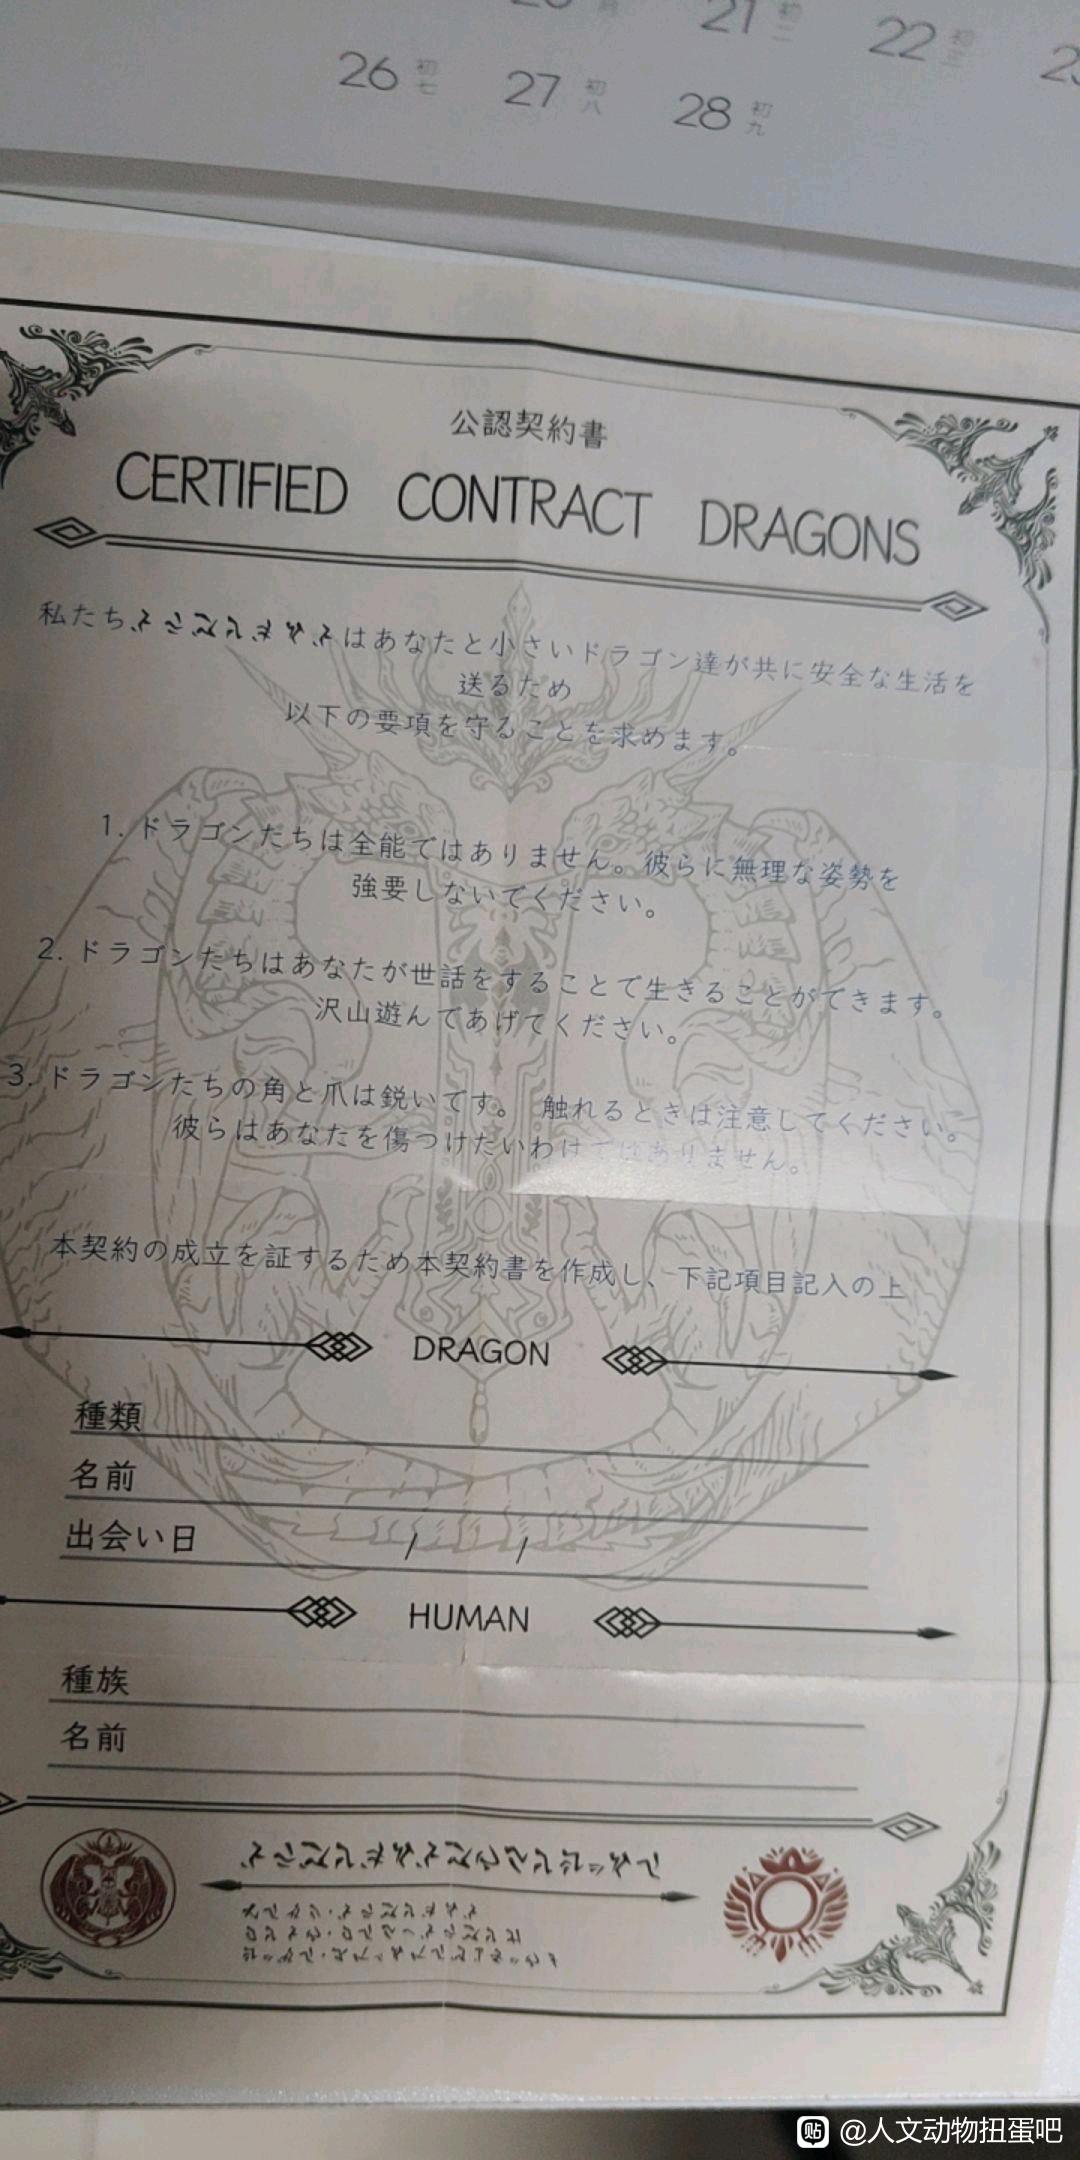 21 初二
22 初三
26 初七
27 初八
28 初九
公認契約書
CERTIFIED CONTRACT DRAGONS
私たち はあなたと小さいドラゴン達が共に安全な生活を
送るため
以下の要項を守ることを求めます。
1. ドラゴンたちは全能ではありません。彼らに無理な姿勢を
強要しないでください。
2. ドラゴンたちはあなたが世話をすることで生きることができます。
沢山遊んであげてください。
3. ドラゴンたちの角と爪は鋭いです。 触れるときは注意してください。
彼らはあなたを傷つけたいわけではありません。
本契約の成立を証するため本契約書を作成し、下記項目記入の上
DRAGON
種類
名前
出会い日 / /
HUMAN
種族
名前
贴 @人文动物扭蛋吧